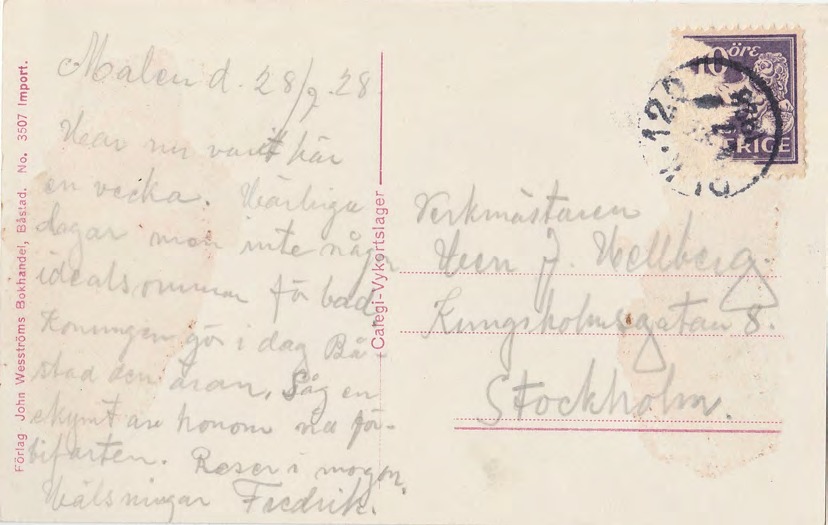 Malen d. 28/7.28.
Har nu varit här
en vecka. Härliga
dagar men inte någon
idealsommar för bad.
Konungen gör i dag Bå-
stad den äran. Såg en
skymt av honom vid för-
bifarten. Reser i morgon.
Hälsningar Fredrik.
Förlag John Wesströms Bokhandel, Båstad. No. 3507 Import.
Calegi-Vykortslager
10 ÖRE
SVERIGE
Verkmästaren
Herr J. Hellberg.
Kungsholmsgatan 8.
Stockholm.